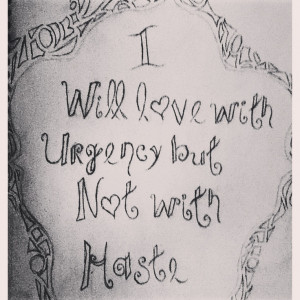 I
Will love with
Urgency but
Not with
Haste